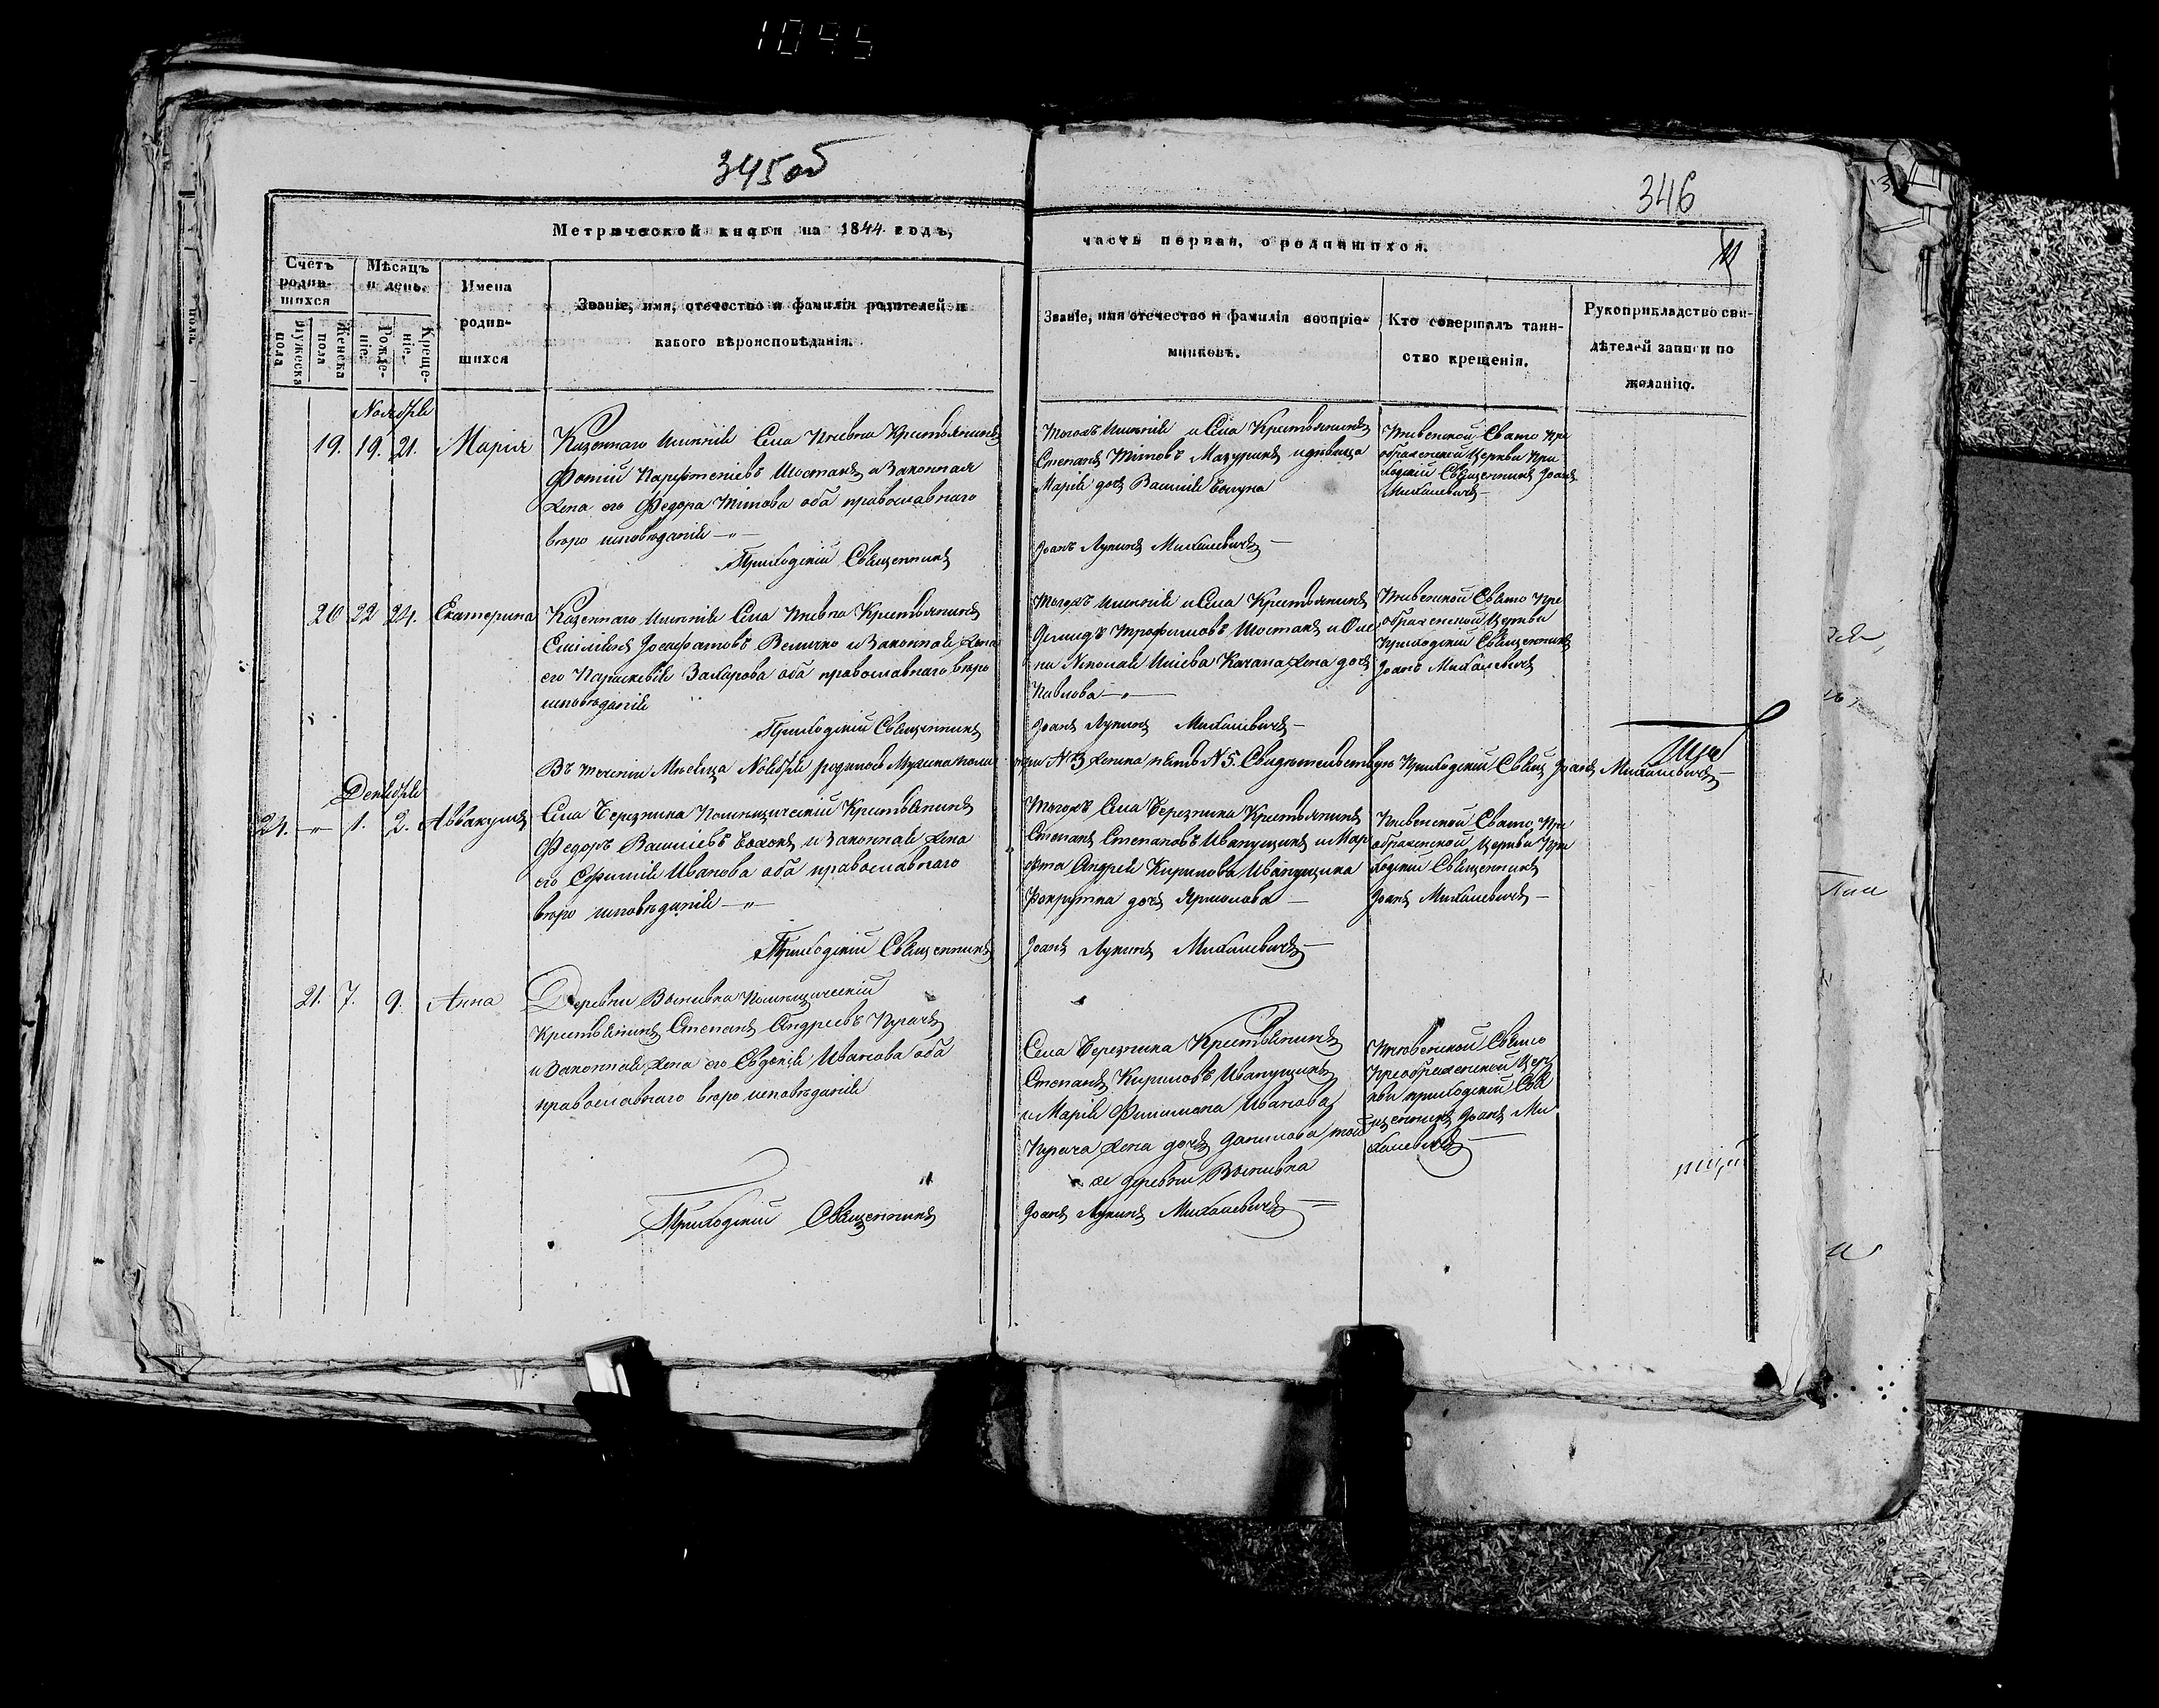 1095
345об
346
Метрической книги на 1844 годъ,
часть первая, о родившихся.
Счетъ родив-шихся
Мужеска пола
Женска пола
Мѣсяцъ и день.
Рожде-ніе.
Креще-ніе.
Имена родив-шихся
Званіе, имя, отечество и фамилія родителей и
какого вѣроисповѣданія.
Званіе, имя отечество и фамилія воспріе-
мниковъ.
Кто совершалъ таин-
ство крещенія.
Рукоприкладство сви-
дѣтелей записи по
желанію.
Ноября
19. 19. 21. Марія
Казеннаго имѣнія Села Пнѣвна Крестьянинъ
Фотій Парфеніевъ Шостакъ и Законная
жена его Федора Тітова оба православнаго
вѣро исповѣданія
Приходскій Священникъ
Тогожъ имѣнія и Села Крестьянинъ
Степанъ Тітовъ Мазурикъ и дѣвица
Марія дочь Василія
Іоанъ Лукинъ Михалевичъ
Пнѣвенской Свято Пре
ображенской Церкви При
ходскій Священникъ Іоанъ
Михалевичъ
20 22 24. Екатерина
Казеннаго имѣнія Села Пнѣвна Крестьянинъ
Іосафатовъ Величко и Законная жена
его Параскевія Захарова оба православнаго вѣро
исповѣданія
Приходскій Священникъ
Тогожъ имѣнія и Села Крестьянинъ
Трофимовъ Шостакъ и
Николая Качана жена дочь
Павлова
Іоанъ Лукинъ Михалевичъ
Пнѣвенской Свято Пре
ображенской Церкви
Приходскій Священникъ
Іоанъ Михалевичъ
Въ теченіи Мѣсяца Ноября родилось Мужеска пола три № 3 женска пять № 5. Свидѣтельствую Приходскій Свящ. Іоанъ Михалевичъ
Декабря
24. 1. 2. Аввакумъ
Села Березичка Помѣщическій Крестьянинъ
Федоръ Василіевъ и Законная жена
его Ефимія Иванова оба православнаго
вѣро исповѣданія
Приходскій Священникъ
Тогожъ Села Березичка Крестьянинъ
Степанъ Степановъ Иванущикъ и Мар
фта Андрея Кирилова Иванущика
дочь Ярмолова
Іоанъ Лукинъ Михалевичъ
Пнѣвенской Свято Пре
ображенской Церкви При
ходскій Священникъ
Іоанъ Михалевичъ
21. 7. 9. Анна
Деревни Помѣщическій
Крестьянинъ Степанъ Андреевъ Пугачъ
и Законная жена его Евдокія Иванова оба
православнаго вѣро исповѣданія
Приходскій Священникъ
Села Березичка Крестьянинъ
Степанъ Кириловъ Иванущикъ
и Марія Филимона Иванова
Пугача жена дочь Данилова той
же деревни
Іоанъ Лукинъ Михалевичъ
Пнѣвенской Свято
Преображенской Цер
кви приходскій Свя
щенникъ Іоанъ Ми
халевичъ